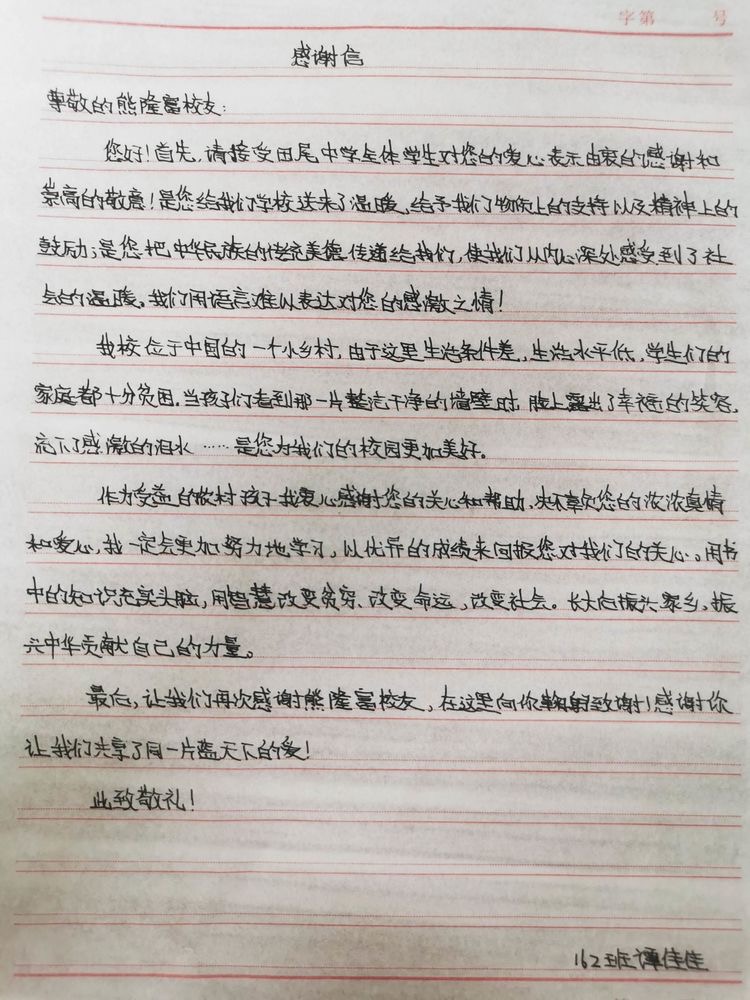 字第 号
感谢信
尊敬的熊隆富校友:
您好!首先,请接受田尾中学全体学生对您的爱心表示由衷的感谢和
崇高的敬意!是您给我们学校送来了温暖,给予我们物质上的支持以及精神上的
鼓励;是您把中华民族的传统美德传递给我们,使我们从内心深处感受到了社
会的温暖。我们用语言难以表达对您的感激之情!
我校位于中国的一个小乡村,由于这里生活条件差,生活水平低,学生们的
家庭都十分贫困。当孩子们看到那一片整洁干净的墙壁时,脸上露出了幸福的笑容,
流下了感激的泪水……是您为我们的校园更加美好。
作为受益的农村孩子我衷心感谢您的关心和帮助,决不辜负您的浓浓真情
和爱心,我一定会更加努力地学习,以优异的成绩来回报您对我们的关心。用书
中的知识充实头脑,用智慧改变贫穷、改变命运,改变社会。长大向振兴家乡,振
兴中华贡献自己的力量。
最后,让我们再次感谢熊隆富校友,在这里向你鞠躬致谢!感谢你
让我们共享了同一片蓝天下的爱!
此致敬礼!
162班谭佳佳